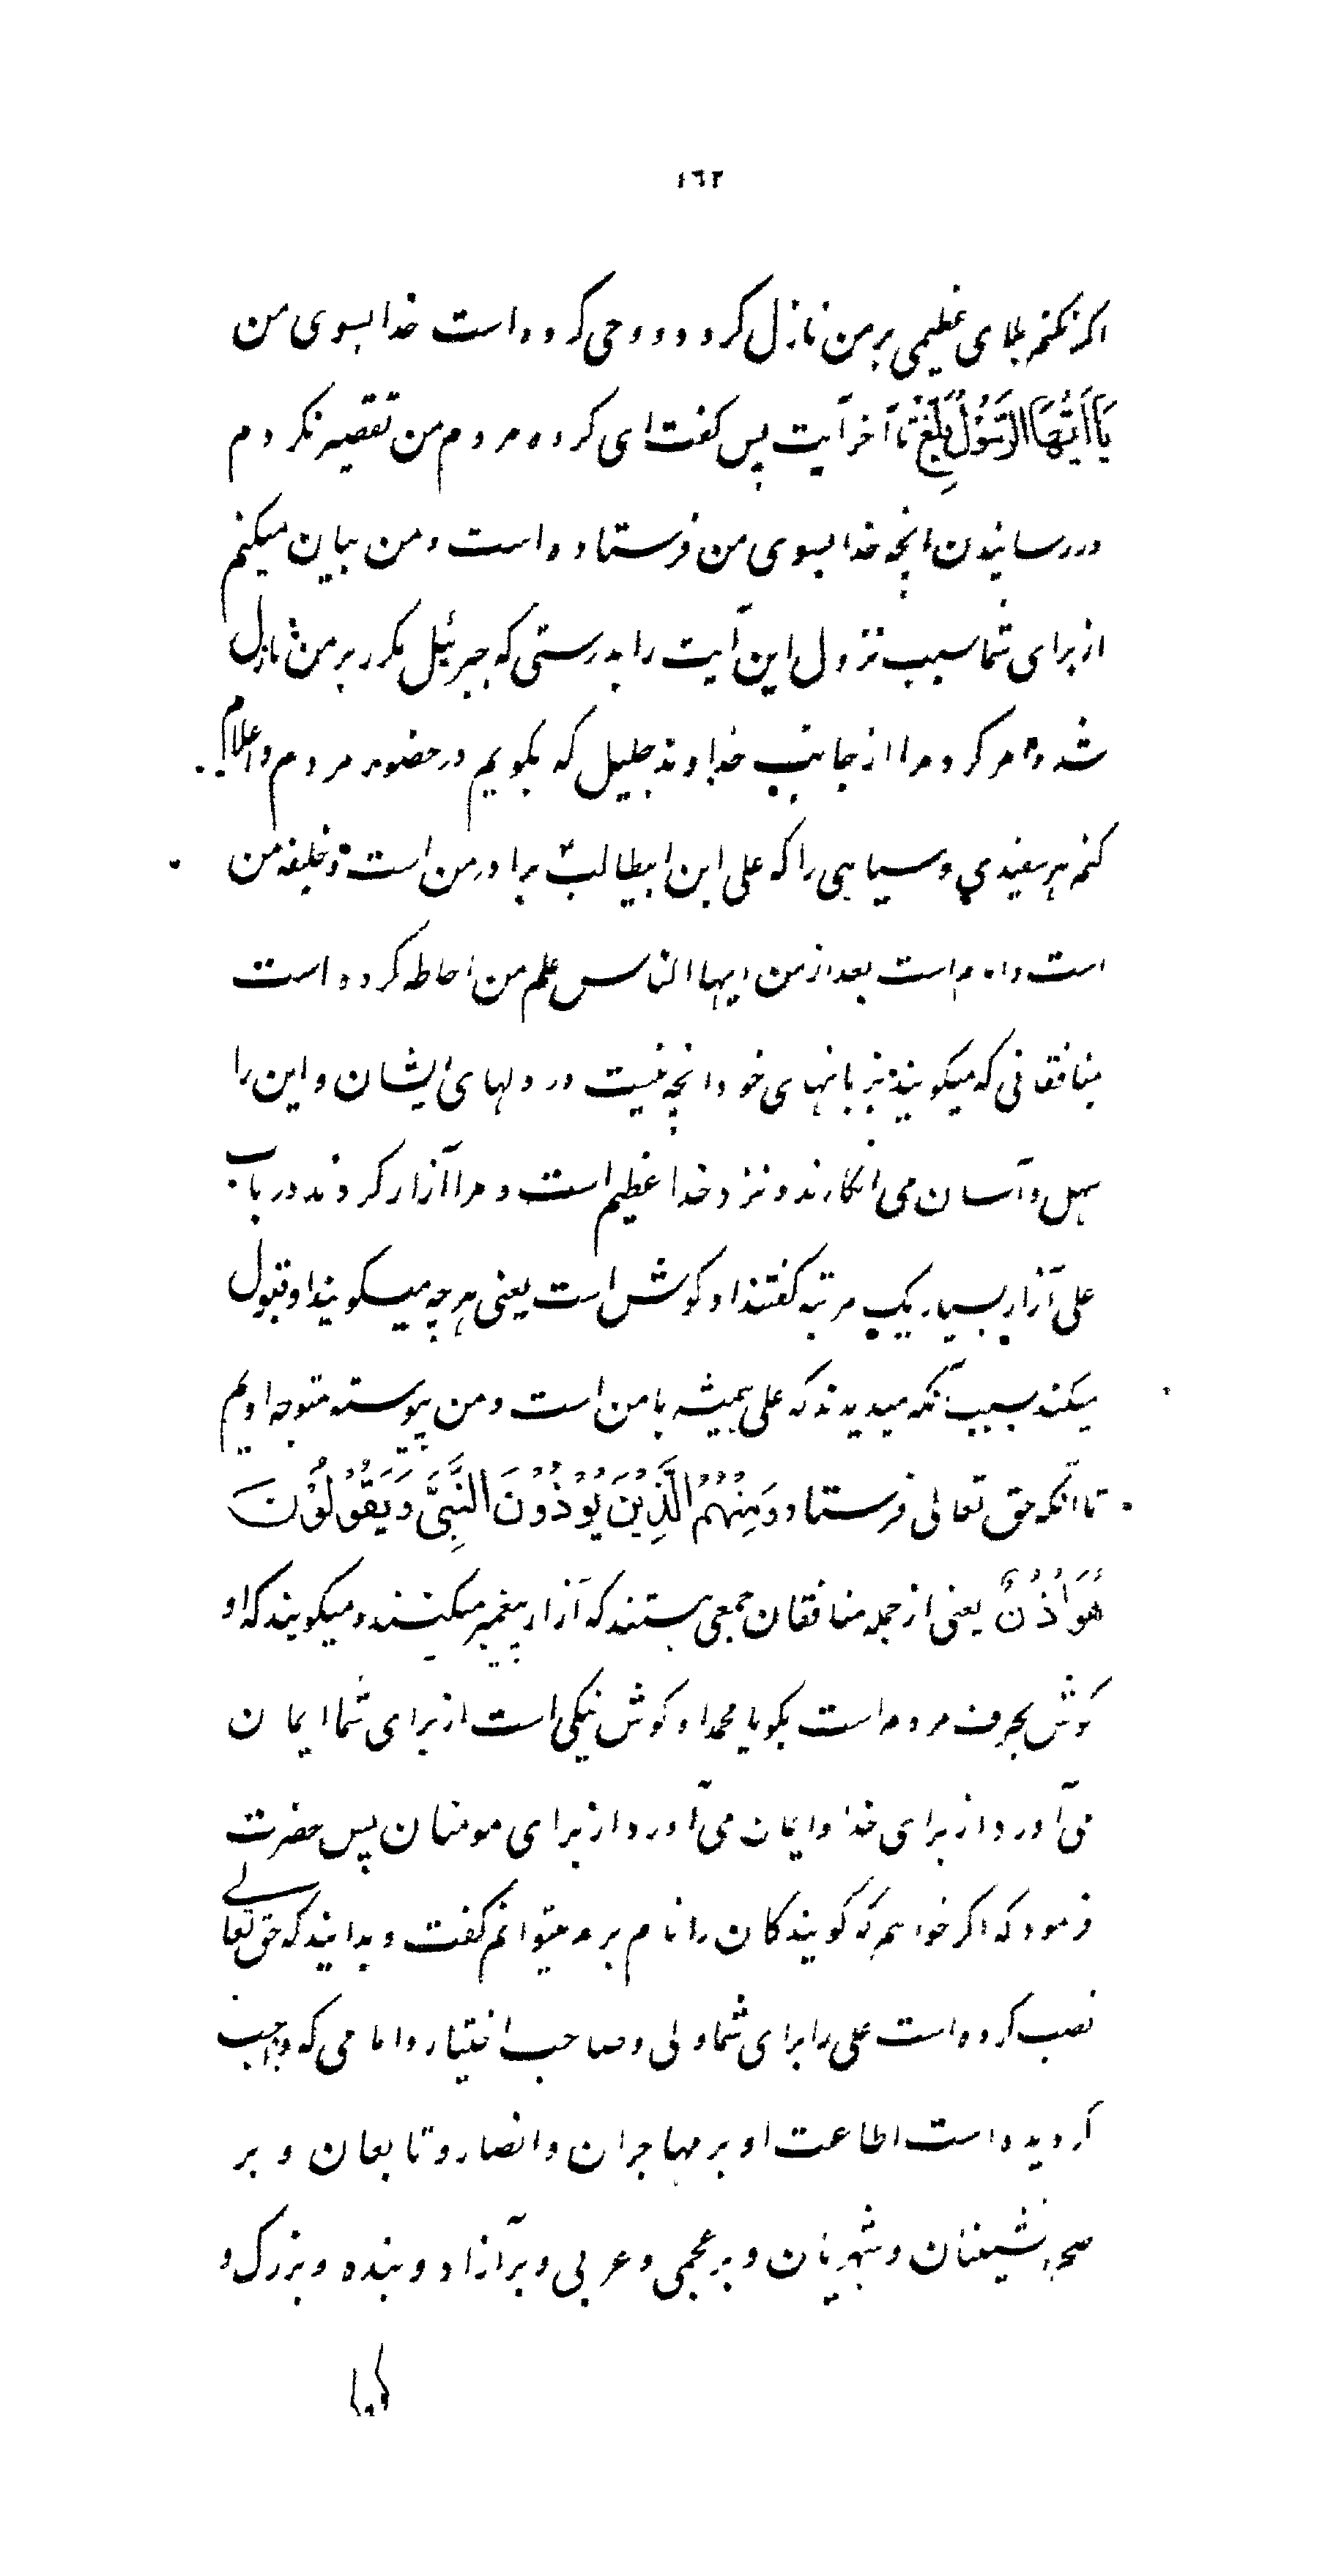 ١٦٢
اکر نکنم بلای عظیمی بر من نازل کردد و وحی کرده است خدا بسوی من
يَا أَيُّهَا الرَّسُولُ بَلِّغْ تا آخر آیت پس کفت ای کروه مردم من تقصیر نکردم
در رسانیدن انچه خدا بسوی من فرستاده است و من بیان میکنم
از برای شما سبب نزول این آیت را بدرستی که جبرئیل مکرر بر من نازل
شد و امر کرد مرا از جانب خداوند جلیل که بکویم در حضور مردم و اعلام
کنم هر سفیدی و سیاهی را که علی ابن ابیطالب برادر من است و خلیفه من
است و امام است بعد از من ایها الناس علم من احاطه کرده است
منافقانی که میکویند بزبانهای خود انچه نیست در دلهای ایشان و این را
سهل و آسان می انکارند و نزد خدا عظیم است و مرا آزار کردند در باب
علی آزار بسیار یک مرتبه کفتند او کوش است یعنی هر چه میکویند او قبول
میکند بسبب آنکه میدیدند که علی همیشه با من است و من پیوسته متوجه اویم
تا آنکه حق تعالی فرستاد وَمِنْهُمُ الَّذِينَ يُؤْذُونَ النَّبِيَّ وَيَقُولُونَ
هُوَ أُذُنٌ یعنی از جمله منافقان جمعی هستند که آزار پیغمبر میکنند و میکویند که او
کوش بحرف مردم است بکو یا محمد او کوش نیکی است از برای شما ایمان
می آورد از برای خدا و ایمان می آورد از برای مومنان پس حضرت
فرمود که اکر خواهم که کویندکان را نام برم میتوانم کفت و بدانید که حق تعالی
نصب کرده است علی را برای شما ولی و صاحب اختیار و امامی که واجب
کردیده است اطاعت او بر مهاجران و انصار و تابعان و بر
صحرا نشینان و شهریان و بر عجمی و عربی و بر آزاد و بنده و بزرک و